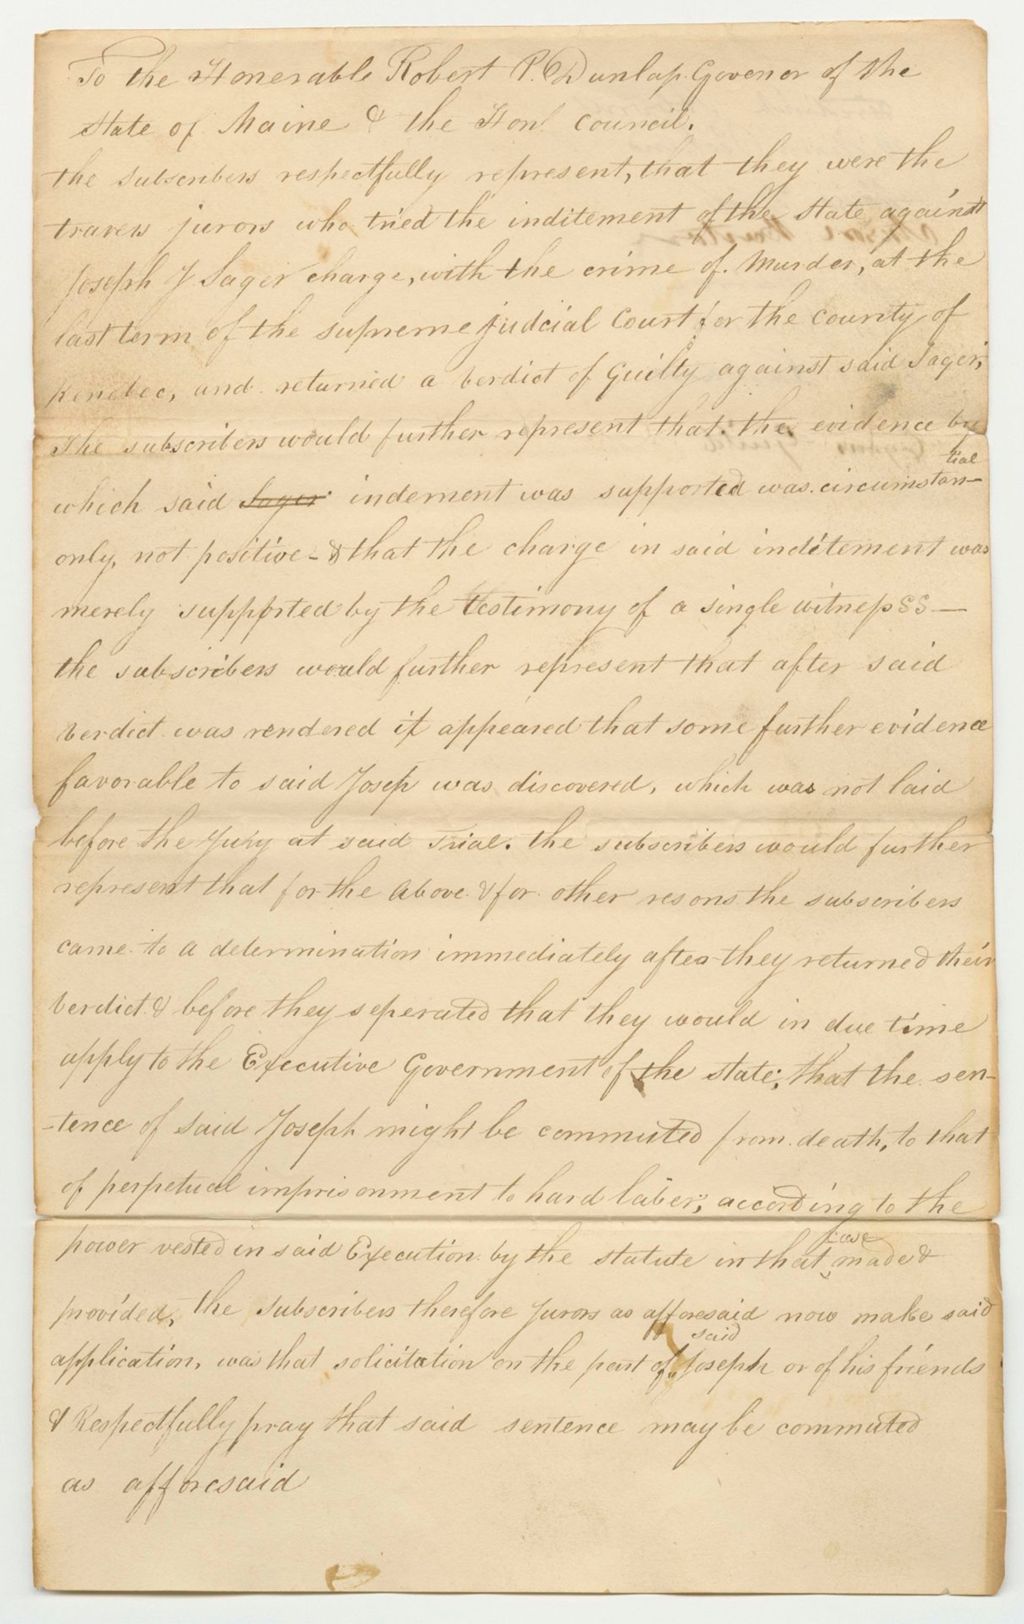 To the Honerable Robert P. Dunlap Govenor of the
State of Maine & the Honl. Council.
the subscribers respectfully represent, that they were the
travers jurors who tried the inditement of the State against
Joseph J Sager charge, with the crime of Murder, at the
last term of the supreme judcial Court for the county of
Kenebec, and returned a verdict of Guilty against said Sager,
The subscribers would further represent that the evidence by
which said Sager indement was supported was circumstan-
tial
only, not positive - & that the charge in said inditement was
merely supported by the testimony of a single witness —
the subscribers would further represent that after said
verdict was rendered it appeared that some further evidence
favorable to said Josep was discovered, which was not laid
before the Jury at said trial. the subscribers would further
represent that for the above & for other resons the subscribers
came to a determination immediately after they returned their
verdict & before they seperated that they would in due time
apply to the Executive Government of the state, that the sen-
-tence of said Joseph might be commuted from death, to that
of perpetual imprisonment to hard laber; according to the
power vested in said Execution by the statute in that case made &
provided, the subscribers therefore Jurors as afforesaid now make said
application, was that solicitation on the part of said Joseph or of his friends
& Respectfully pray that said sentence may be commuted
as afforesaid